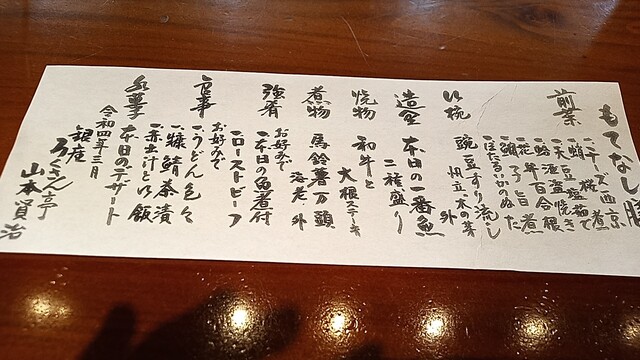 もてなし膳
前菜
一チーズ西京
一蛸 桜煮
一大豆塩茹で
一蛤酒盗焼き
一花弁百合根
一鯛子旨煮
一ほたるいかのぬた
小椀
豌豆すり流し
帆立 木の芽 外
造里
本日の一番魚
二種盛り
焼物
和牛と
大根ステーキ
煮物
馬鈴薯万頭
海老 外
強肴
お好みで
一本日の魚煮付
一ローストビーフ
食事
お好みで
一うどん色々
一糠鯖茶漬
一赤出汁と小飯
水菓
本日のデザート
令和四年三月
銀座
ろくさん亭
山本賢治